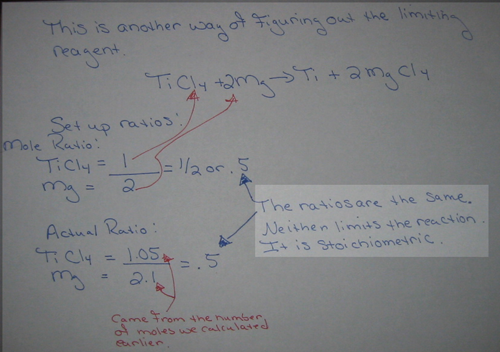 This is another way of figuring out the limiting
reagent.
TiCl4 + 2Mg → Ti + 2MgCl4
Set up ratios:
Mole Ratio:
TiCl4 = 1
Mg = 2 = 1/2 or .5
Actual Ratio:
TiCl4 = 1.05
Mg = 2.1 = .5
The ratios are the same.
Neither limits the reaction.
It is stoichiometric.
Came from the number
of moles we calculated
earlier.